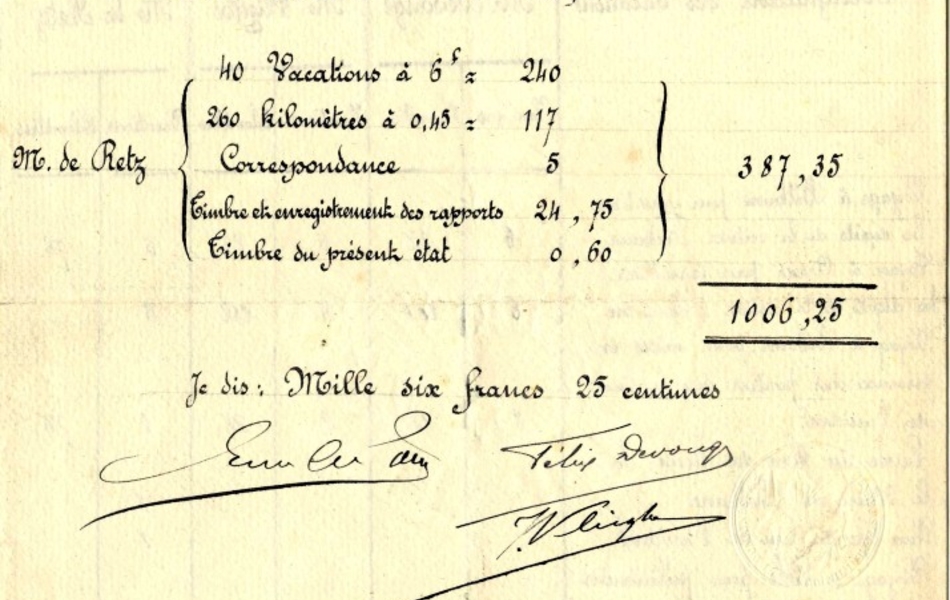 40 Vacations à 6f = 240
260 kilomètres à 0,45 = 117
M. de Retz Correspondance 5 387,35
Timbre et enregistrement des rapports 24,75
Timbre du présent état 0,60
1006,25
Je dis : Mille six francs 25 centimes
Félix